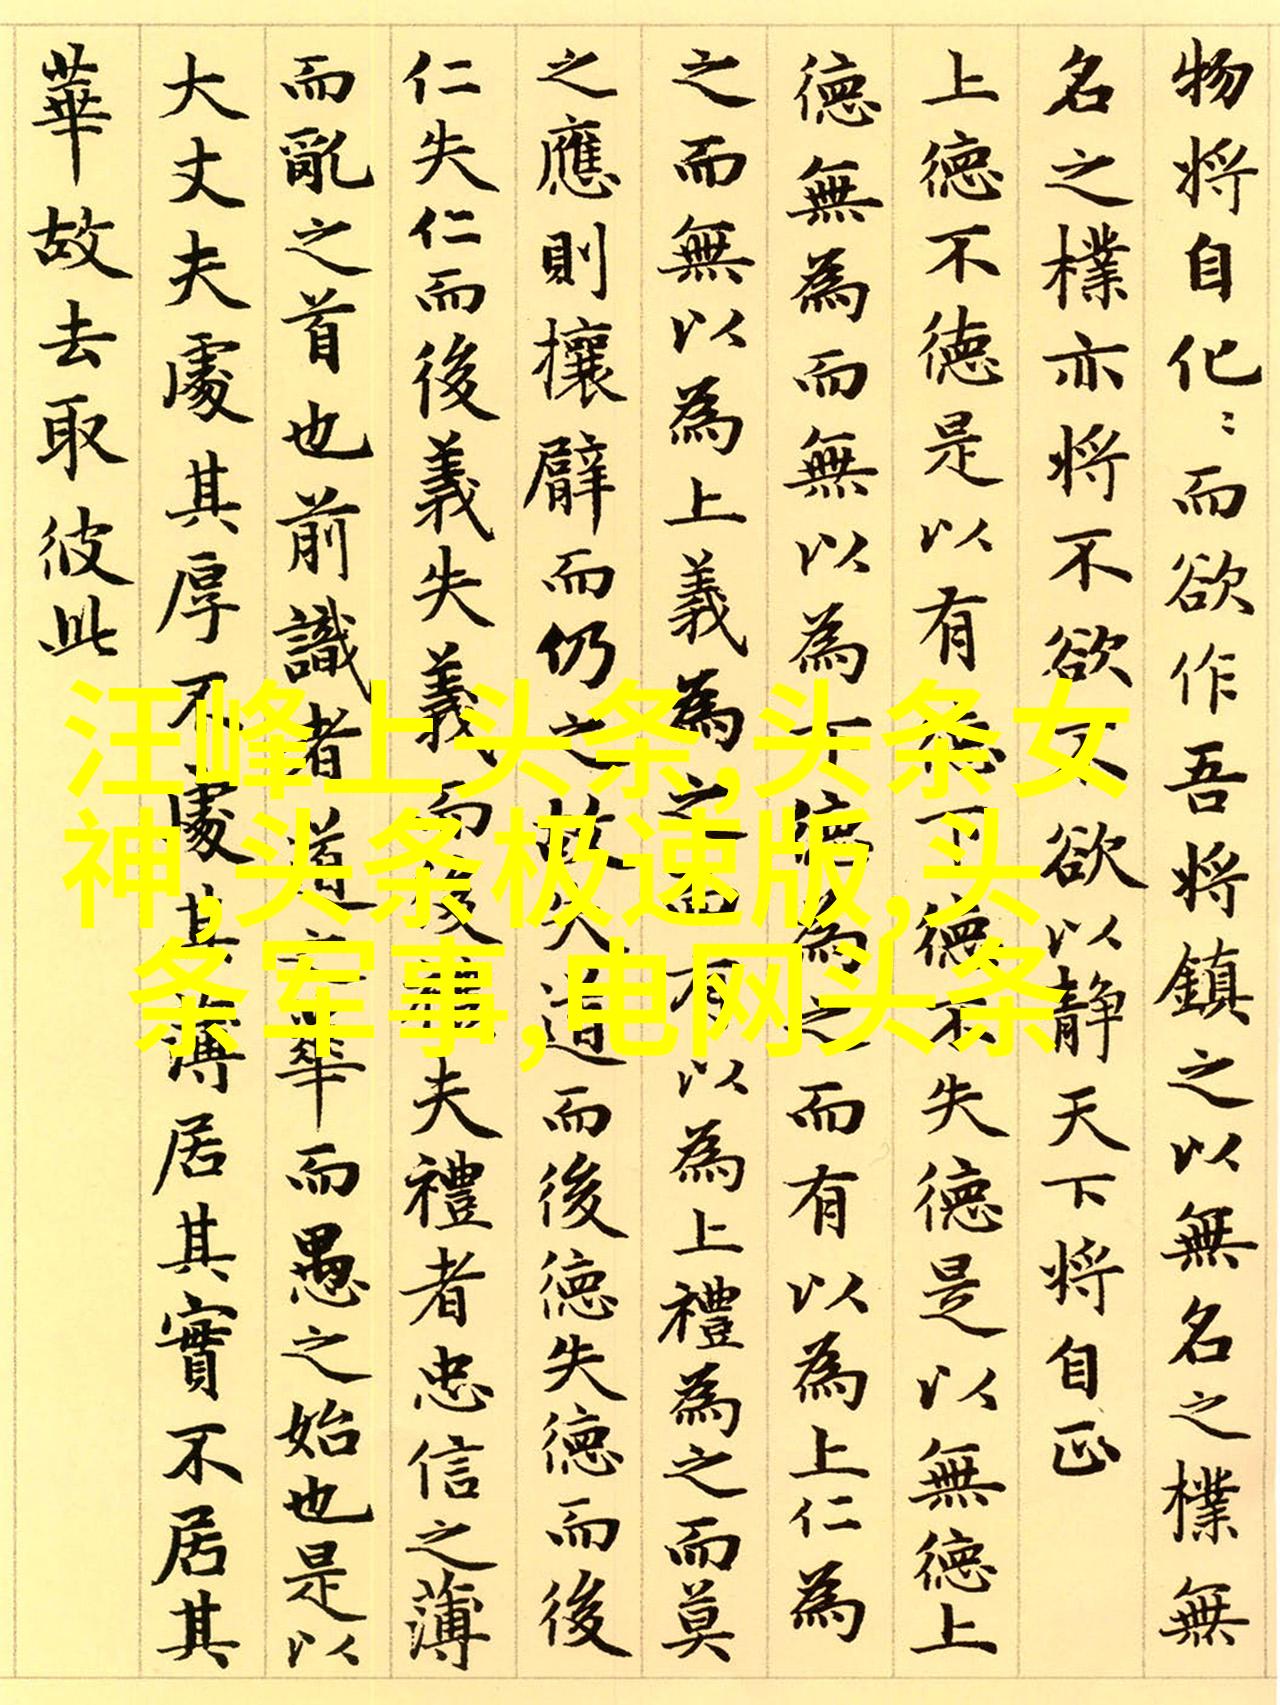 物将自化〻而欲作吾将鎮之以無名之樸無
名之樸亦将不欲不欲以静天下将自正
上德不德是以有德下德不失德是以無德上
德無為而無以為下德為之而有以為上仁為
之而無以為上義為之而有以為上禮為之而莫
之應則攘臂而仍之故失道而後德失德而後
仁失仁而後義失義而後禮夫禮者忠信之薄
而亂之首也前識者道之華而愚之始也是以
大丈夫處其厚不處其薄居其實不居其
華故去取彼此
汪峰上头条,头条女
神,头条极速版,头
条军事,电网头条